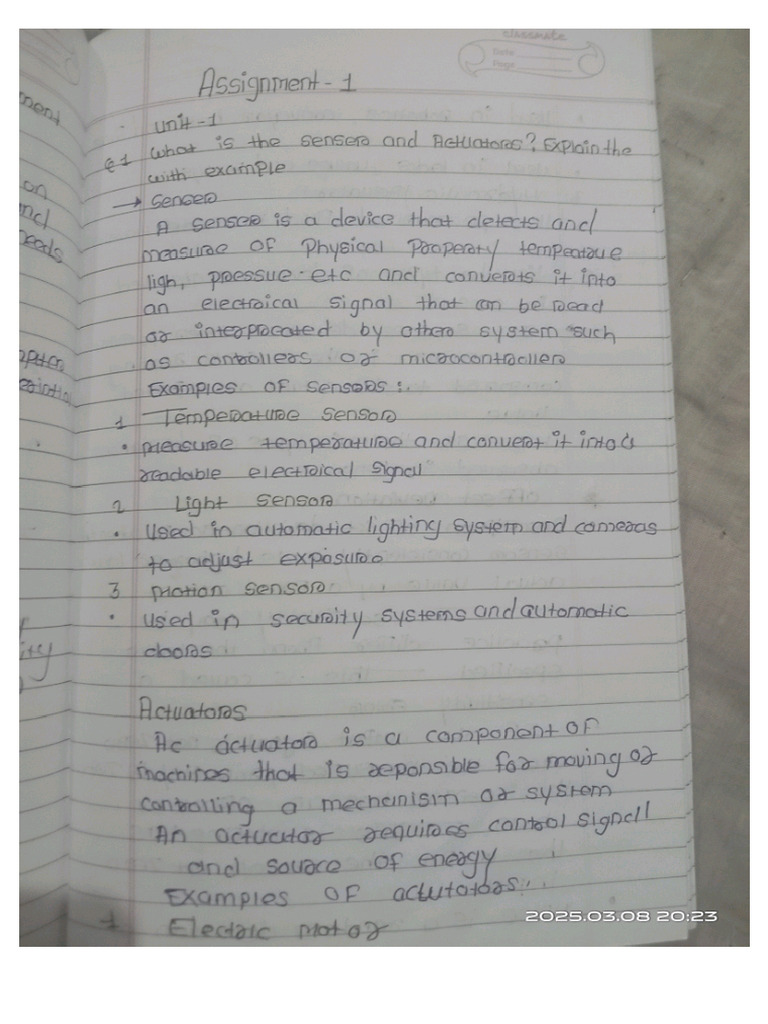 classmate
Date
Page
Assignment - 1
unit - 1
Q1 what is the sensor and Actuators? Explain the
with example
→ sensor
A sensor is a device that detects and
measure of Physical Property tempeatrue
ligh, pressue. etc and converts it into
an electrical signal that can be read
or interprocated by others system such
as controllers or microcontrollers
Examples of sensors :
1 Temperature sensors
• measure temperature and convert it into a
readable electrical signal
2 Light sensor
• Used in automatic lighting system and cameras
to adjust exposure
3 Motion sensor
• Used in security systems and automatic
doors
Actuators
Ac actuator is a component of
machines that is reponsible for moving or
controlling a mechanism or system
An actuator requires control signal
and source of energy
Examples of actutators:
1 Electric Motor
ment
on
and
ity
2025.03.08 20:23